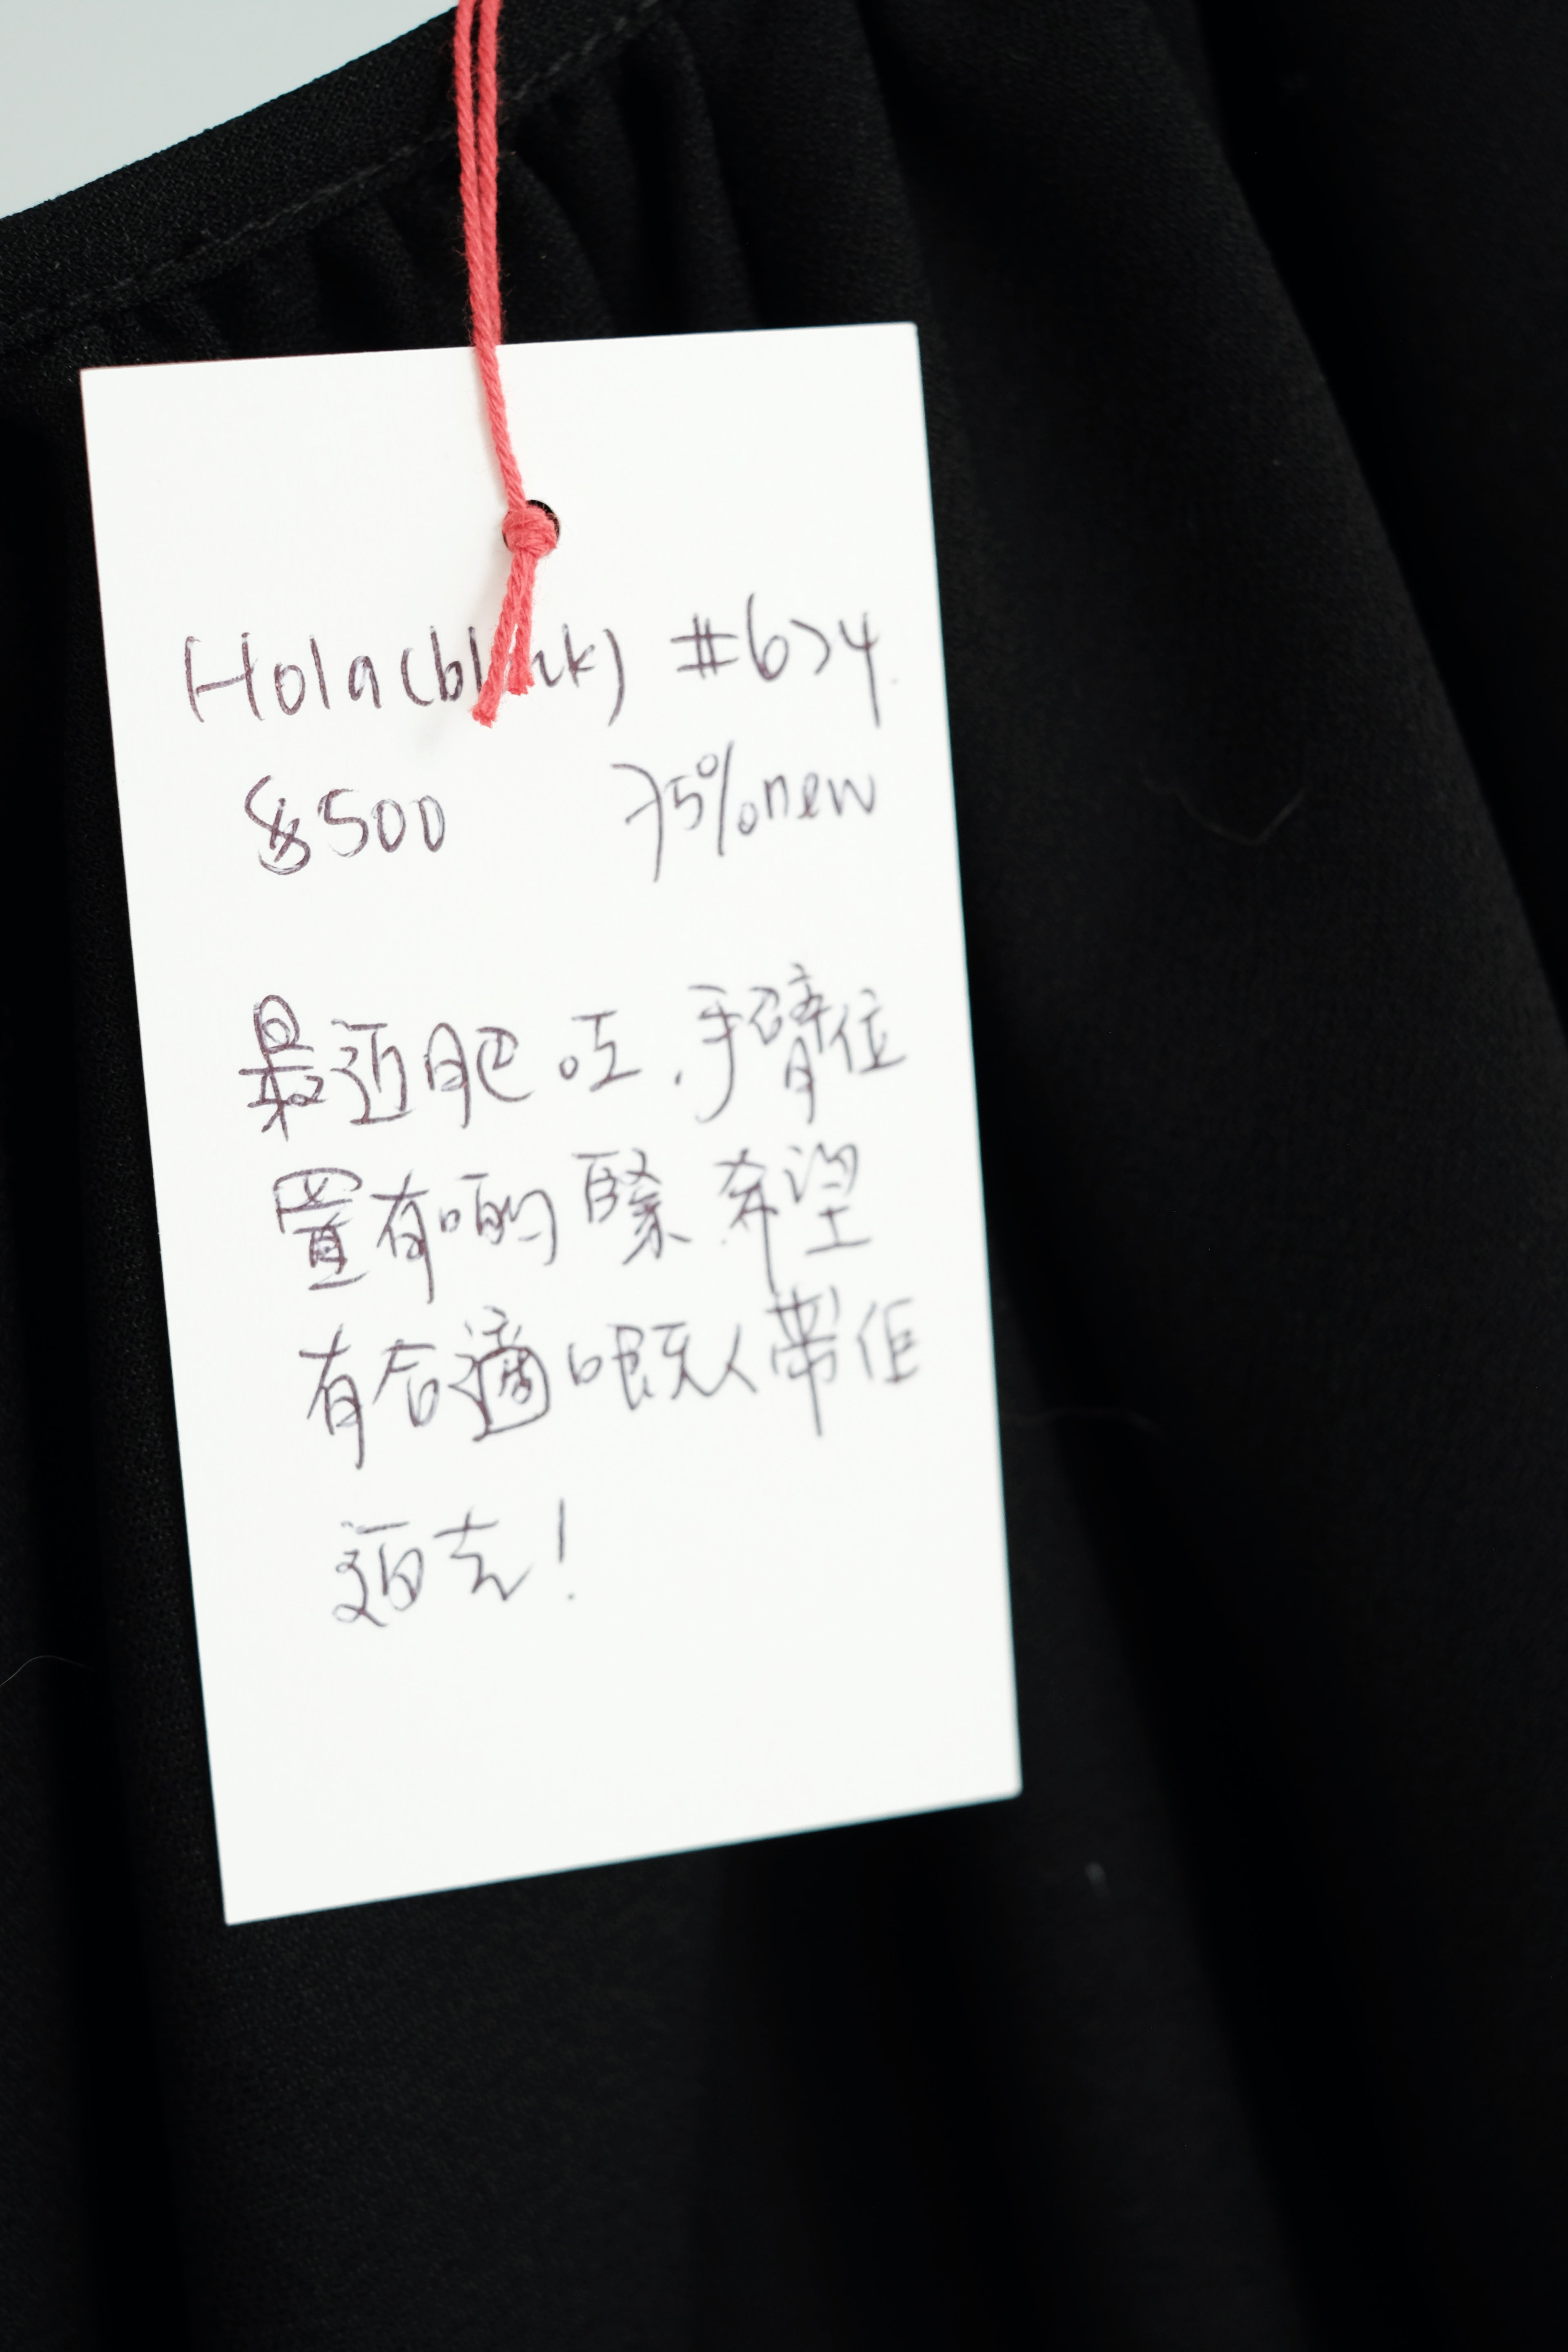 Hola(blink) #674
$500 75%new
最近肥咗,手臂位
置有啲緊 希望
有合適嘅主人帶佢
返去!